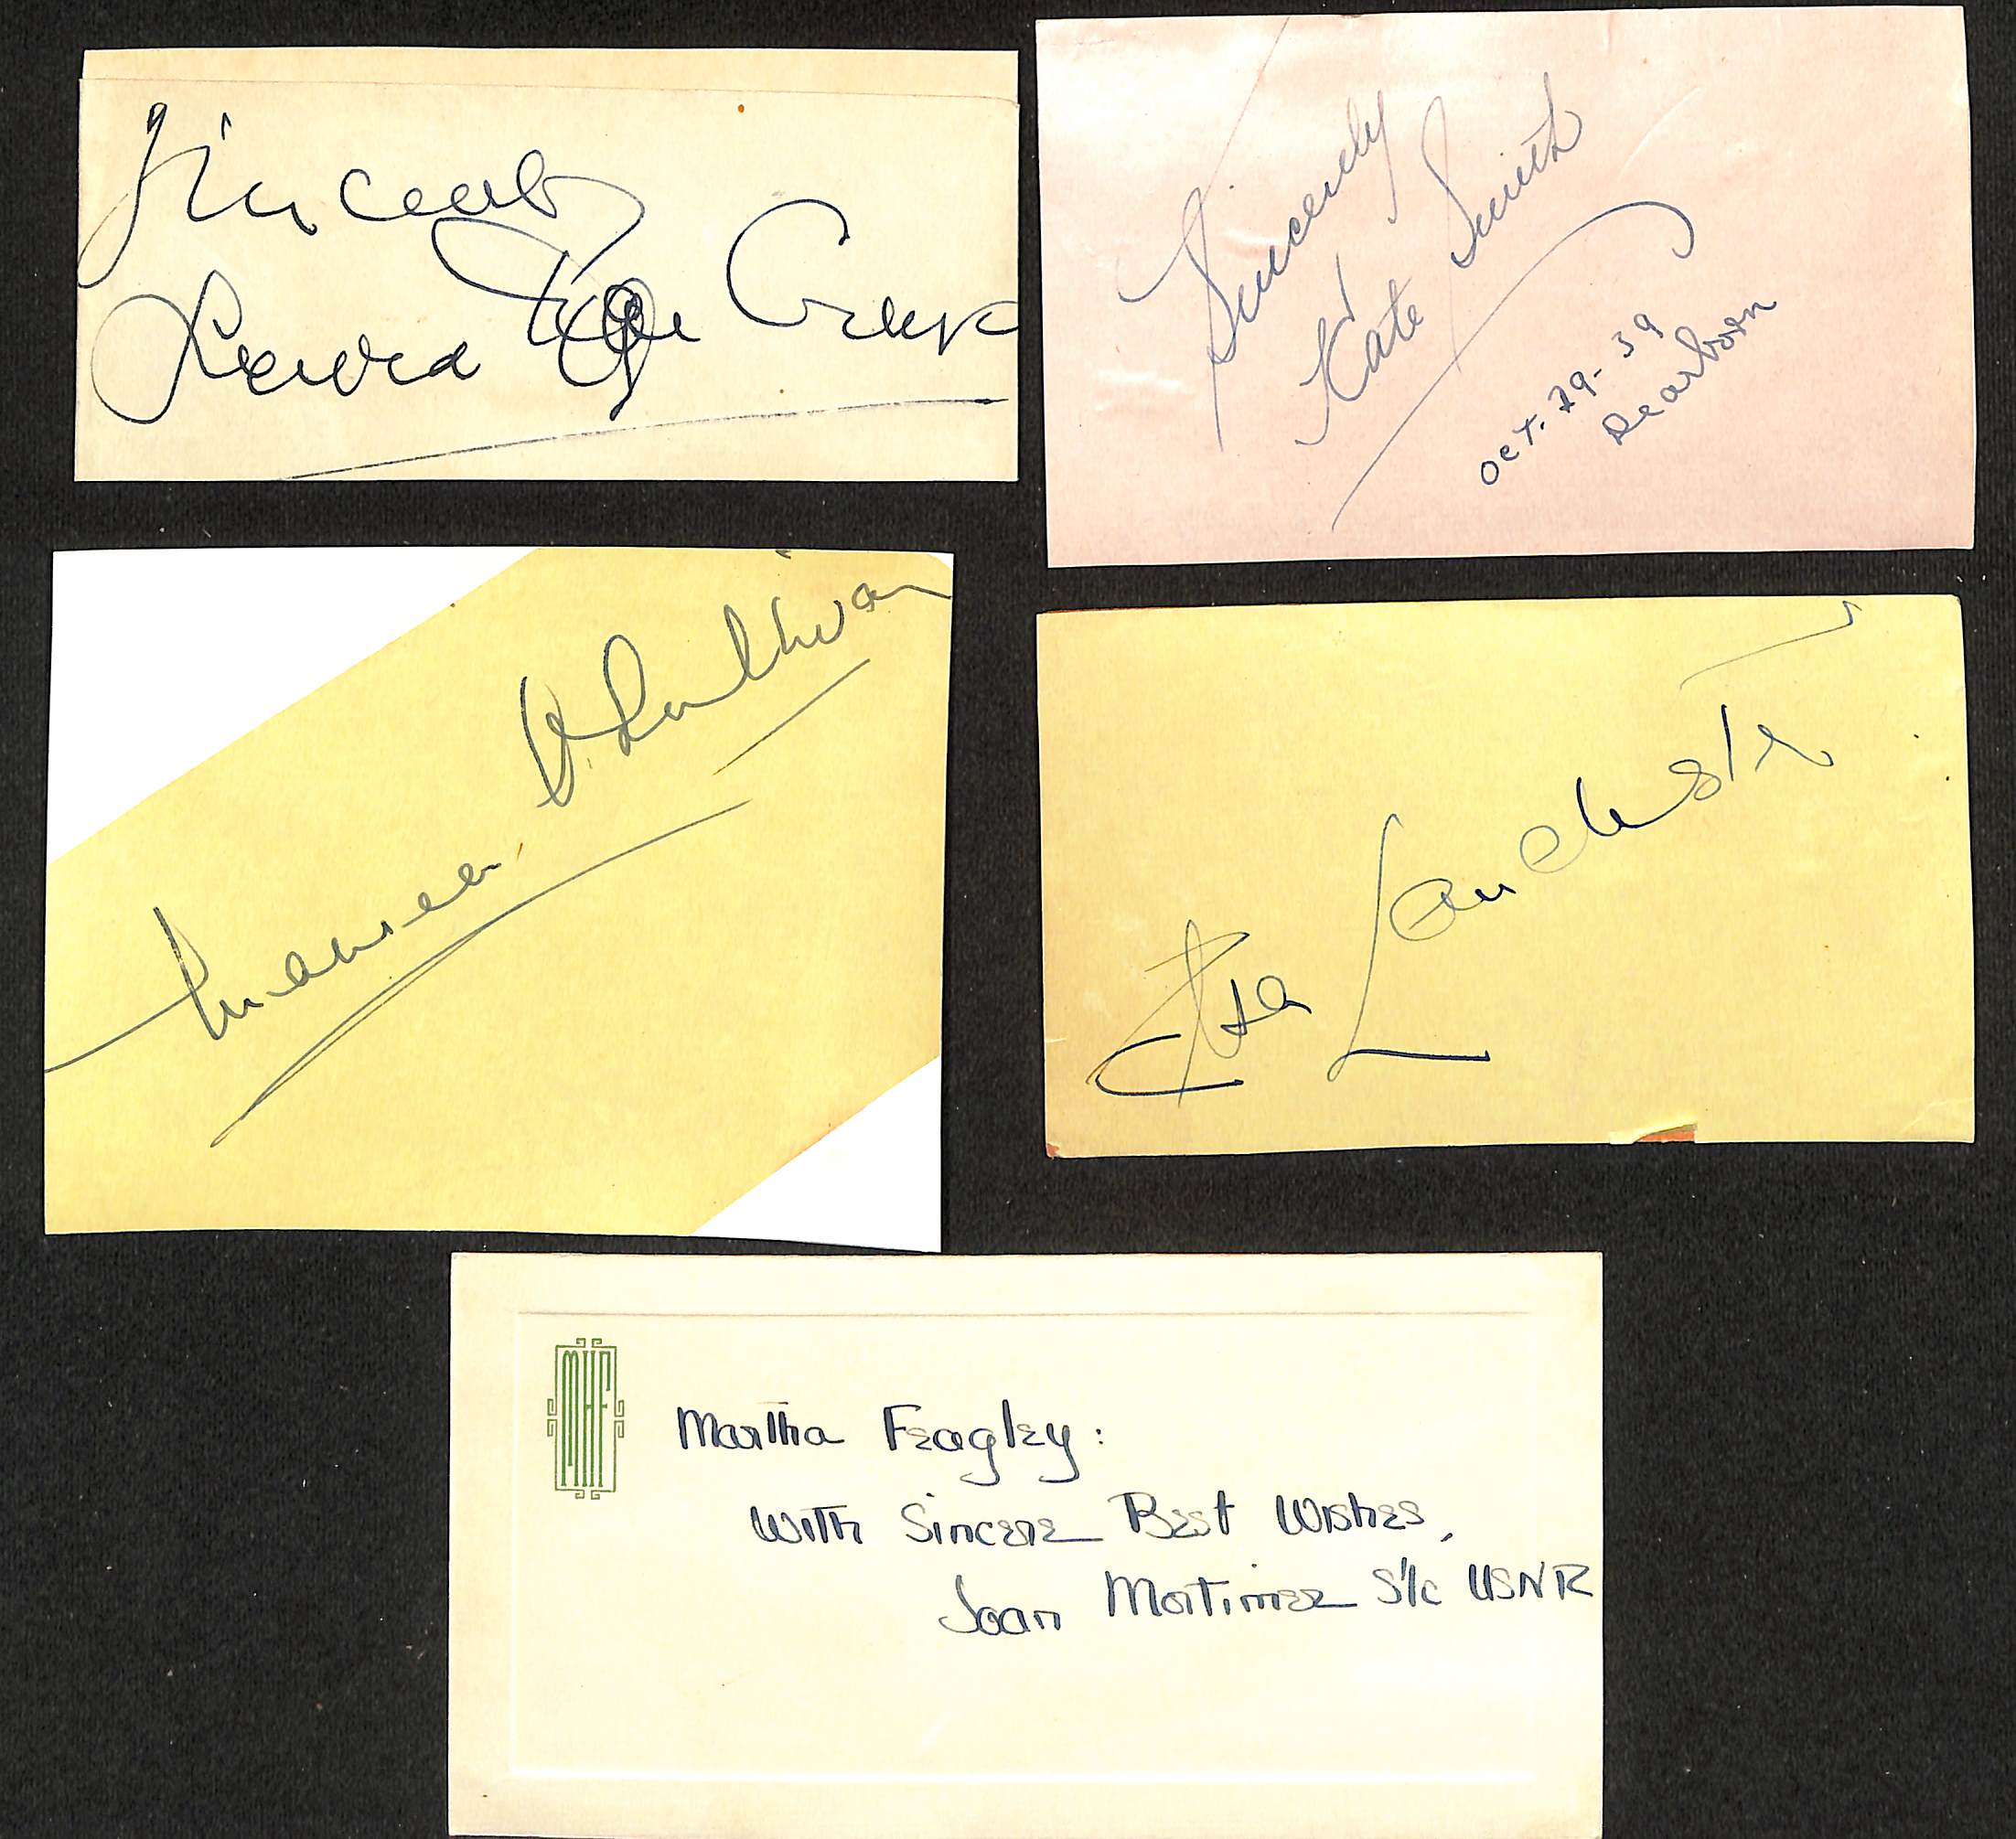 Sincerely
Laura Hope Crews
Sincerely
Kate Smith
Oct. 29-39
Dearborn
Maureen O'Sullivan
Elsa Lanchester
MHF
Martha Feagley:
With Sincere Best Wishes,
Joan Mortimer S1/c USNR